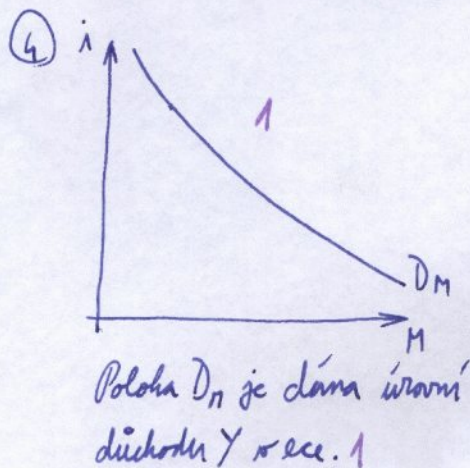 4 i
1
D_M
M
Poloha D_M je dána úrovní
důchodu Y v ece. 1